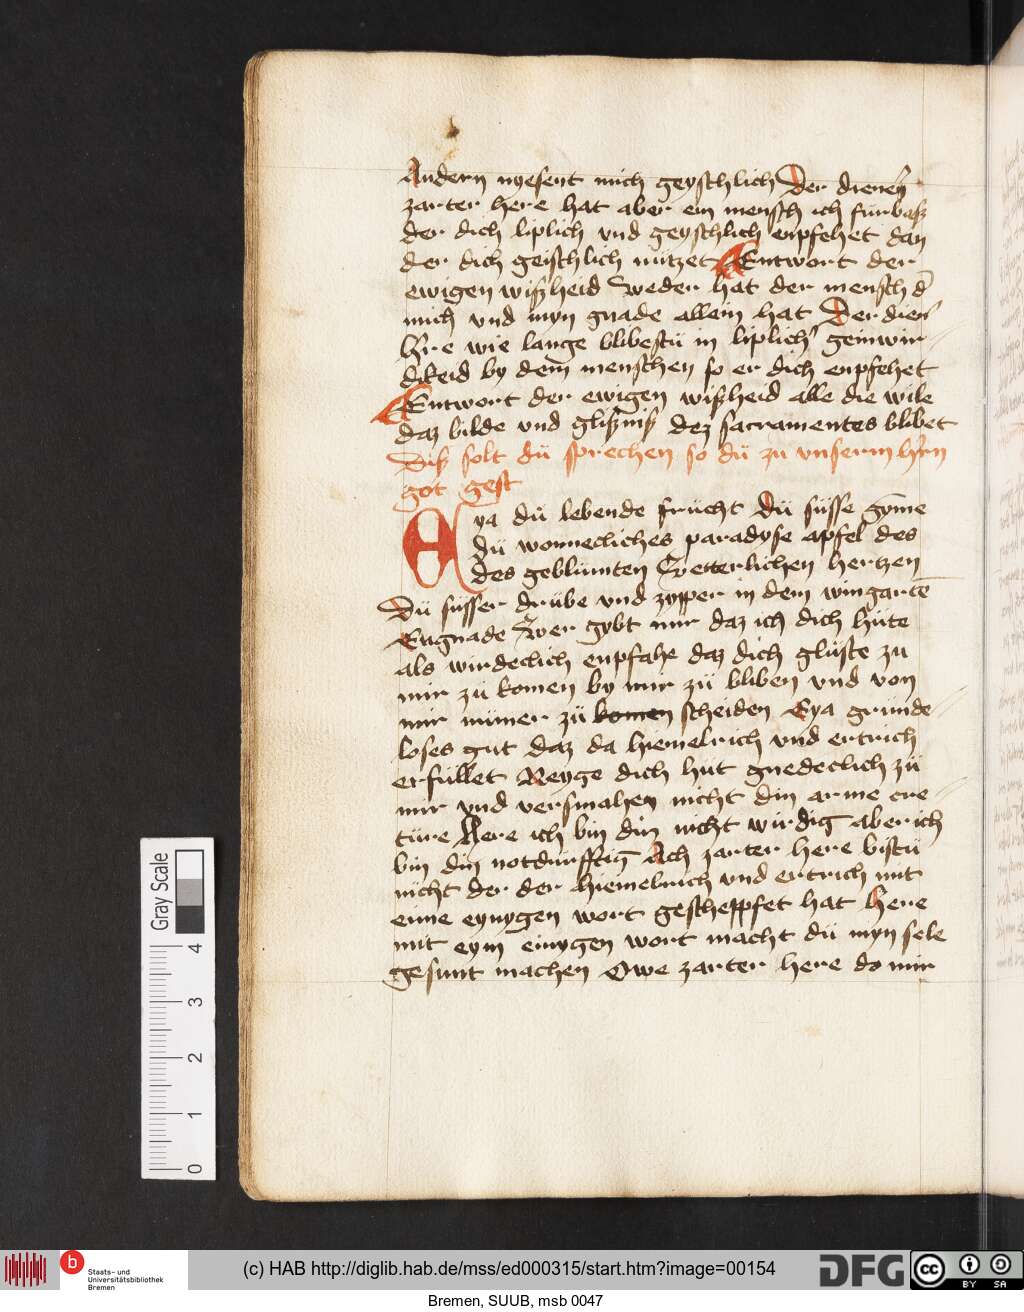 Andern nyesent mich geyschlich Der dieneȳ
zarter here hat aber ein mensch ich furbaſz
der dich liplich vnd geyschlich enpfehet dan
der dich geischlich nützet Entwort der
ewigen wiſzheid Weder hat der mensch d̄
mich vnd myn gnade allein hat Der dien̄
h̄re wie lange blibestu in liplich̄ geinwir
dikeid by dem menschen so er dich enpfehet
Entwort der ewigen wiſzheid alle die wile
daz bilde vnd gliſzniſz dez sacramentes blibet
Diſz solt dü sprechen so dü zu vnserm h̄rn
got gest
Eya dü lebende frücht Dü süsse gȳme
dü wonnecliches paradyse apfel des
des geblümten vetterlichen hertzen
Dü süsser drübe vnd zypper in dem wingartē
Engnade Wer gybt mir daz ich dich hüte
als wirdeclich enpfahe daz dich glüste zu
mir zü komen by mir zü bliben vnd von
mir nümer zü komen scheiden Eya grunde
loses gut daz da hiemelrich vnd ertrich
erfüllet Neyge dich hut gnedeclich zü
mir vnd versmahen nicht din arme cre
türe Here ich bin din nicht wirdig aber ich
bin din notdürfftig Ach zarter here bistü
nicht der der hiemelrich vnd ertrich mit
eime eynygen wort gescheppfet hat here
mit eym einygen wort macht dü myn sele
gesunt machen Owe zarter here do mir
Gray Scale
4
3
2
1
0
b
Staats- und
Universitätsbibliothek
Bremen
(c) HAB http://diglib.hab.de/mss/ed000315/start.htm?image=00154
DFG
cc
BY SA
Bremen, SUUB, msb 0047